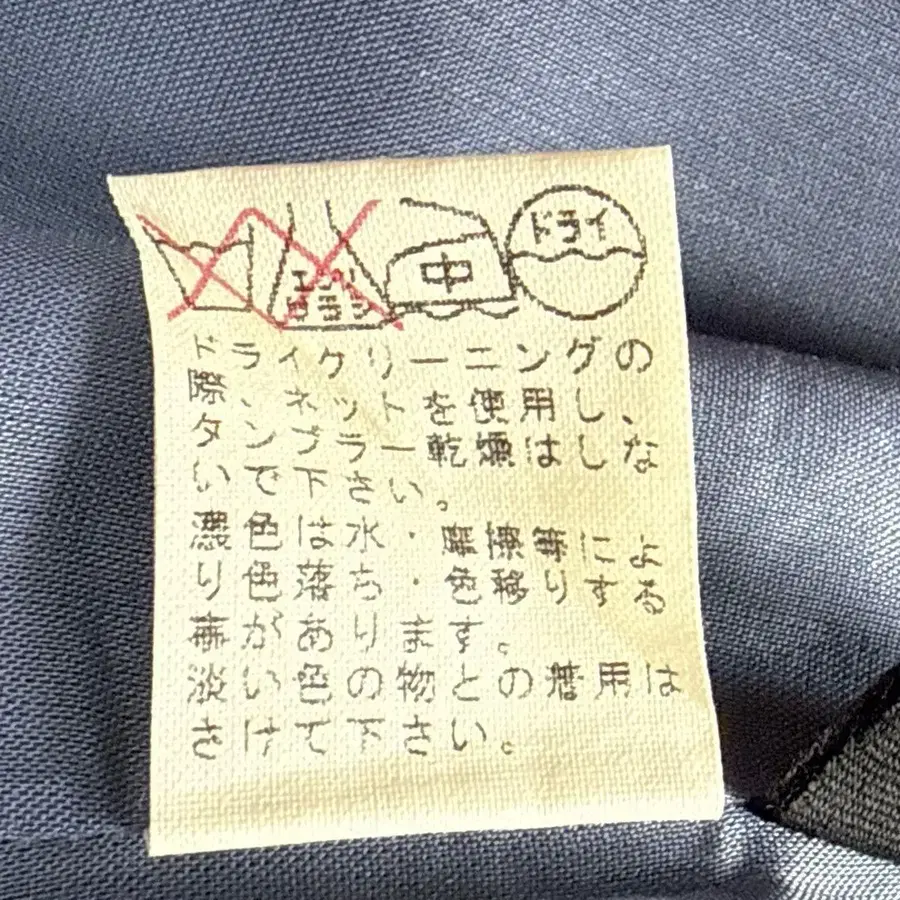 エンソ サラシ 中 ドライ
ドライクリーニングの
際、ネットを使用し、
タンブラー乾燥はしな
いで下さい。
濃色は水・摩擦等によ
り色落ち・色移りする
事があります。
淡い色の物との着用は
さけて下さい。